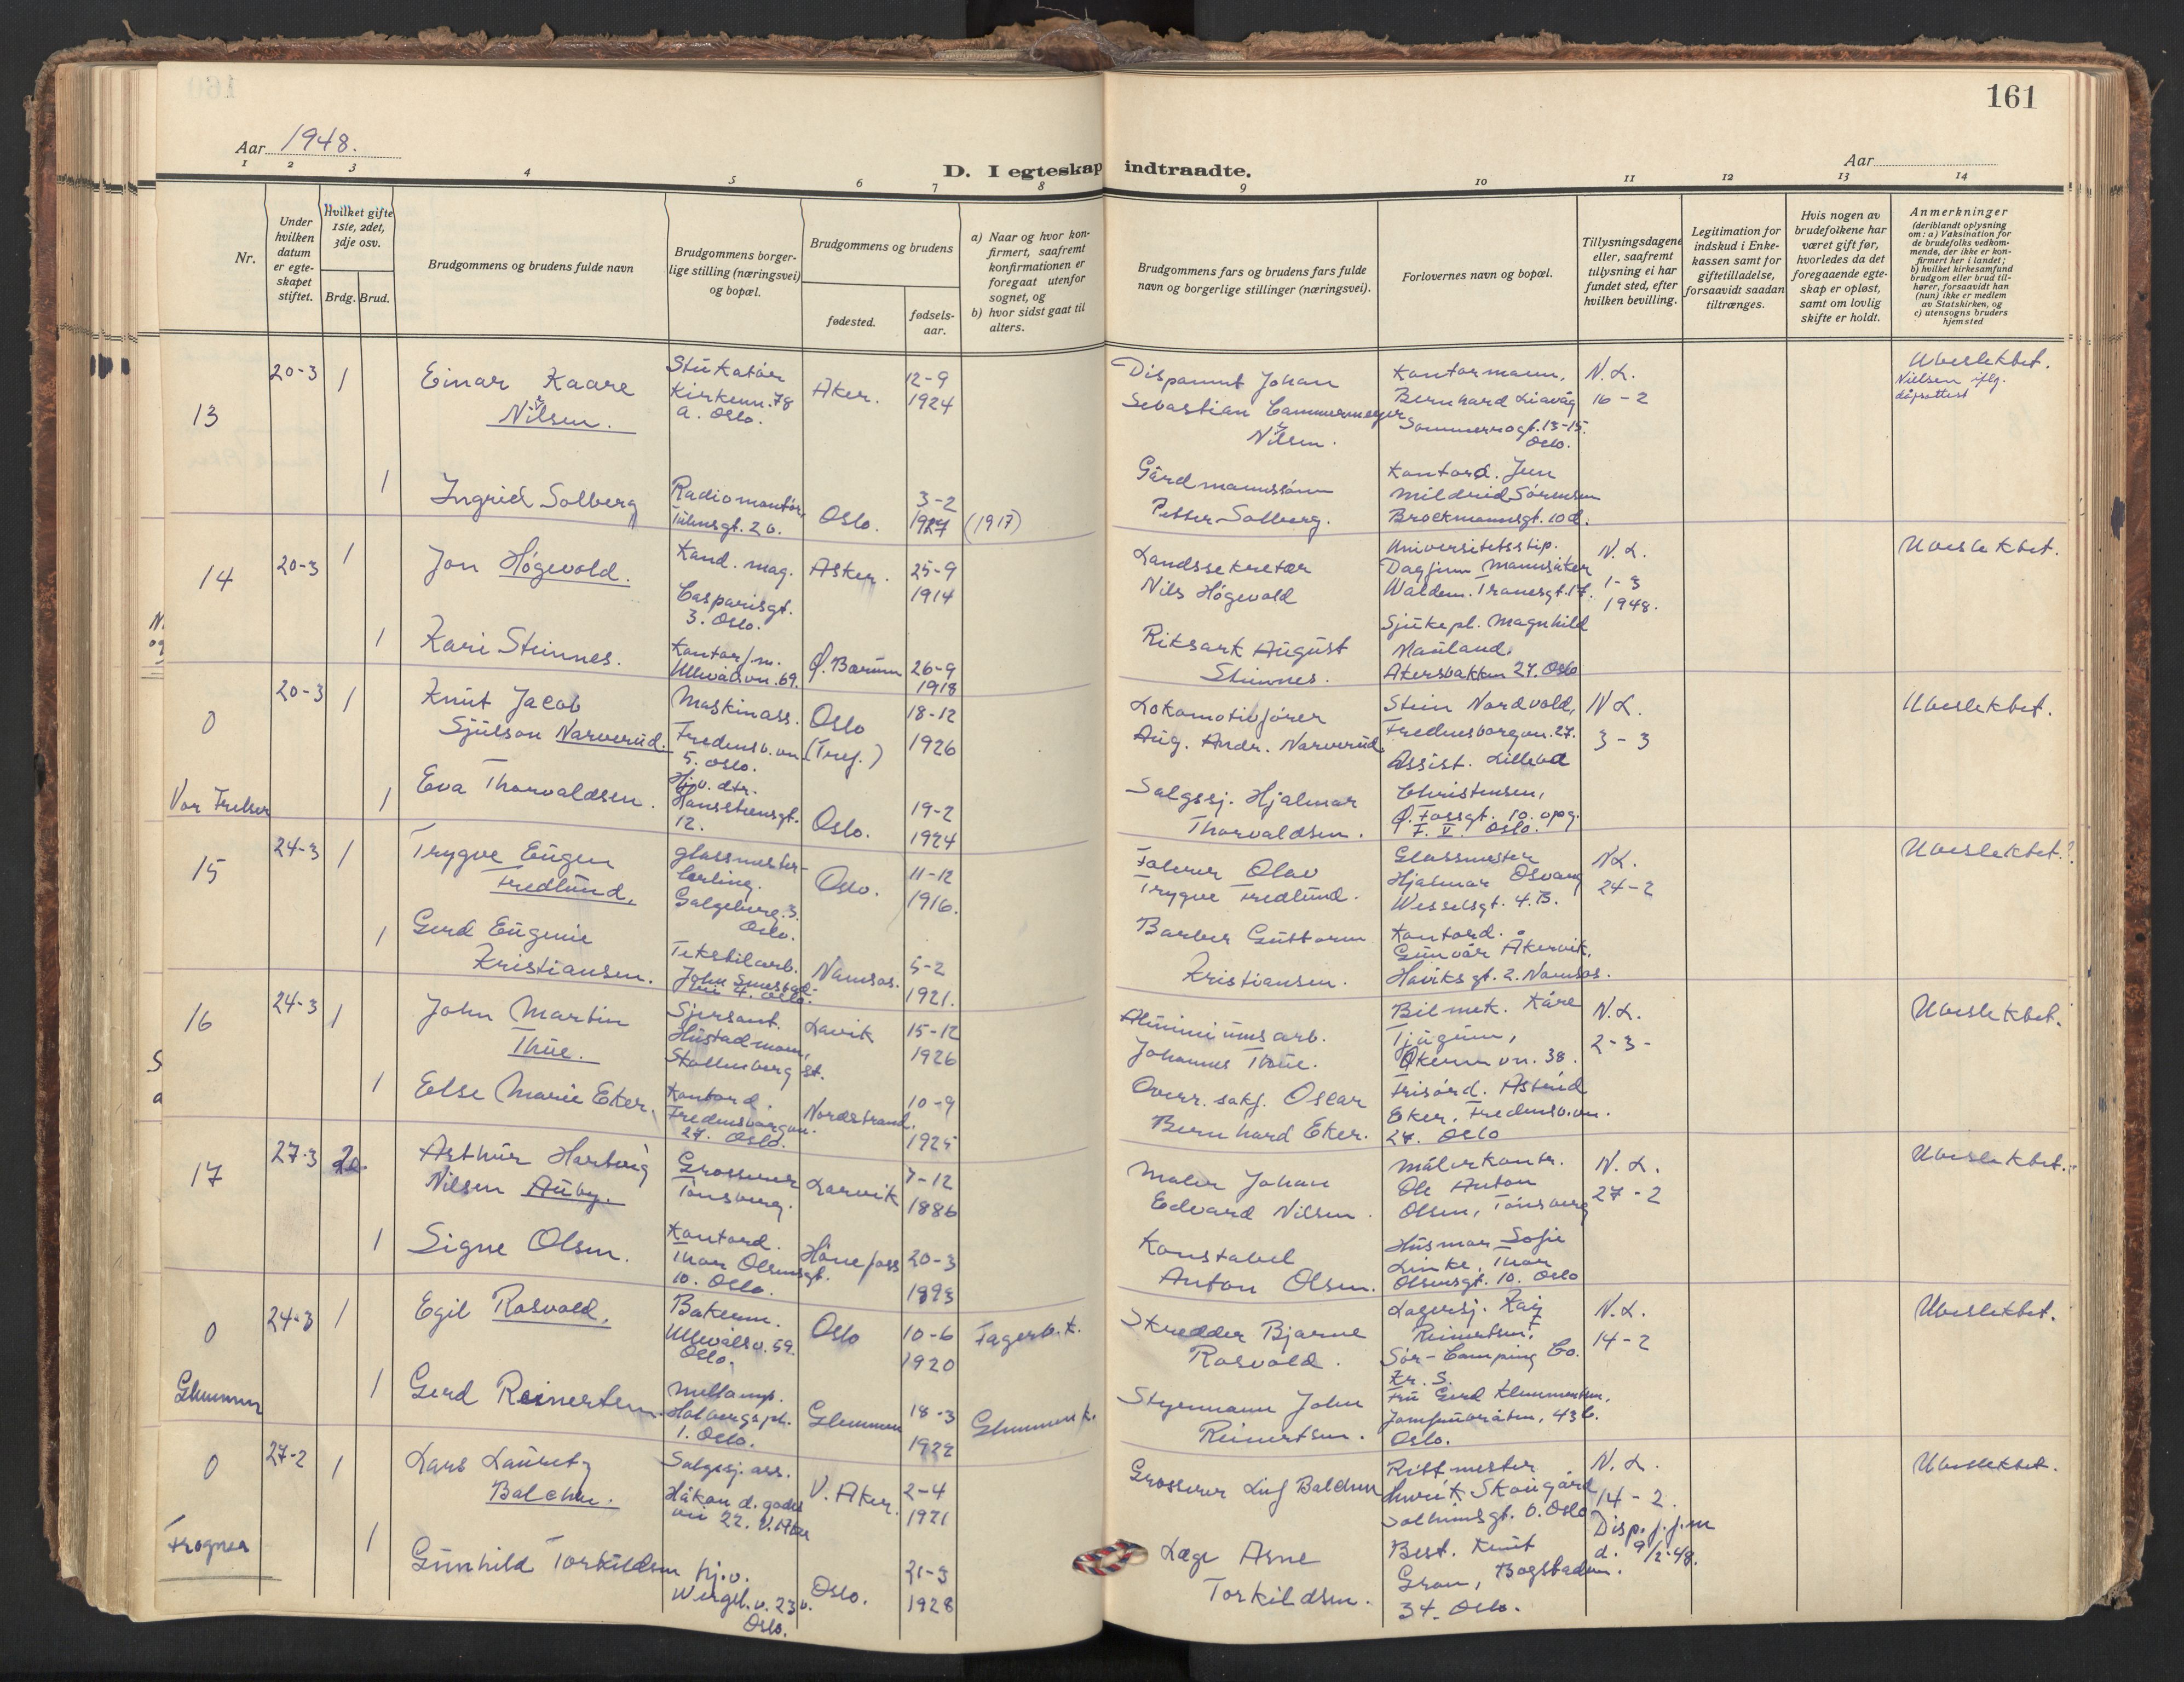 161
Aar 1948.
Aar
D. I egteskap indtraadte.
1 2 3 4 5 6 7 8 9 10 11 12 13 14
Nr.
Under hvilken datum er egteskapet stiftet.
Hvilket gifte 1ste, 2det, 3dje osv.
Brdg. Brud.
Brudgommens og brudens fulde navn
Brudgommens borgerlige stilling (næringsvei) og bopæl.
Brudgommens og brudens
fødested.
fødselsaar.
a) Naar og hvor konfirmert, saafremt konfirmationen er foregaat utenfor sognet, og
b) hvor sidst gaat til alters.
Brudgommens fars og brudens fars fulde navn og borgerlige stillinger (næringsvei).
Forlovernes navn og bopæl.
Tillysningsdagene eller, saafremt tillysning ei har fundet sted, efter hvilken bevilling.
Legitimation for indskud i Enkekassen samt for giftetilladelse, forsaavidt saadan tiltrænges.
Hvis nogen av brudefolkene har været gift før, hvorledes da det foregaaende egteskap er opløst, samt om lovlig skifte er holdt.
Anmerkninger (deriblandt oplysning om: a) Vaksination for de brudefolks vedkommende, der ikke er konfirmert her i landet; b) hvilket kirkesamfund brudgom eller brud tilhører, forsaavidt han (hun) ikke er medlem av Statskirken, og c) utensogns bruders hjemsted
13
20-3
1
Einar Kaare
Nilsen.
Stukatør
Kirkevn. 78
a. Oslo.
Aker.
12-9
1924
Disponent Johan
Sebastian Cammermeyer
Nilsen.
Kontormann,
Bernhard Liavåg
Sommerrogt. 13-15.
Oslo.
N.L.
16-2
Ubeslektet.
Nielsen iflg.
dåpsattest
1
Ingrid Solberg
Radiomontør,
2 b.
Oslo.
3-2
1927
(1917)
Gårdmannssønn
Petter Solberg.
Kontord. Jun
Mildrid Sørensen
Brockmannsgt. 10d.
14
20-3
1
Jon Høgevold.
Kand. mag.
Casparisgt.
3. Oslo.
Asker.
25-9
1914
Landssekretær
Nils Høgevold
Universitetsstip.
Dagfinn Mannsåker
Waldem. Tranesgt. 17.
N.L.
1-3
1948.
Ubeslektet.
1
Kari Steinnes.
Kontorfm.
Ullevålvn. 69.
Ø. Bærum
26-9
1918
Riksark August
Steinnes.
Sjukepl. Magnhild
Mauland.
Akersbakken 27. Oslo
0
20-3
1
Knut Jacob
Sjulson Narverud.
Maskinass.
Fredensb. vn
5. Oslo.
Oslo
(Tref.)
18-12
1926
Lokomotivfører
Aug. Andr. Narverud
Stein Nordvold,
Fredensborgvn. 27.
N.L.
3-3
Ubeslektet.
Vor Frelser
1
Eva Thorvaldsen.
Hjv. dtr.
Hansteensgt.
12.
Oslo.
19-2
1924
Salgssj. Hjalmar
Thorvaldsen.
Assist. Lillevd
Christensen,
Ø. Fossgt. 10. opg.
F. V. Oslo.
15
24-3
1
Trygve Eugen
Fredlund.
glassmester-
lærling.
Galgeberg. 3.
Oslo.
Oslo.
11-12
1916.
Falerer Olav
Trygve Fredlund.
Glassmester
Hjalmar Osvang
Wesselsgt. 4. B.
N.L.
24-2
Ubeslektet.
1
Gerd Eugenie
Kristiansen.
Tekstilarb.
John Smestad-
vei 4. Oslo.
Namsos.
5-2
1921.
Barber Guttorm
Kristiansen.
Kontord.
Gunvår Åkervik,
Haviksgt. 2. Namsos.
16
24-3
1
John Martin
Thue.
Sjersant.
Hustadmoen,
Stallenberg st.
Lavik
15-12
1926
Aluminiumsarb.
Johannes Thue.
Bilmek. Kåre
Tjugum,
Økernvn. 38.
N.L.
2-3-
Ubeslektet.
1
Else Marie Eker.
Kontord.
Fredensborgvn.
27. Oslo.
Nordstrand.
10-9
1925
Overr. sakf. Oscar
Bernhard Eker.
Frisørd. Astrid
Eker, Fredensb.vn.
27. Oslo
17
27-3
2
Arthur Hartvig
Nilsen Auby.
Grosserer
Tønsberg.
Larvik
7-12
1886
Maler Johan
Edvard Nilsen.
Målerkontr.
Ole Anton
Olsen, Tønsberg
N.L.
27-2
Ubeslektet.
1
Signe Olsen.
Kontord.
Thor Olsensgt.
10. Oslo.
Hønefoss
20-3
1893
Konstabel
Anton Olsen.
Husmor Sofie
Linke, Thor
Olsensgt. 10. Oslo
0
24-3
1
Egil Rosvold.
Bakerm.
Ullevålsv. 59.
Oslo.
Oslo
10-6
1920
Fagerb. k.
Skredder Bjarne
Rosvold.
Lagersj. Kaj
Reinertsen,
Sør-Camping Co.
Kr. S.
N.L.
14-2
Ubeslektet.
Glemmen
1
Gerd Reinertsen.
Holbergs pl.
1. Oslo.
Glemmen
18-3
1922
Glemmen k.
Styrmann John
Reinertsen.
Fru Gerd Klemmentsen,
Jomfrubråten, 43 b.
Oslo.
0
27-2
1
Lars Lauritz
Balchen.
Salgssj. ass.
Håkon d. godes
vei 22. V. Aker
V. Aker.
2-4
1921
Grosserer Leif Balchen
Rittmester
Henrik Skougård
Solheimsgt. 6. Oslo
N.L.
14-2.
Disp. f. j. m
d. 9/2-48.
Ubeslektet.
Frogner
1
Gunhild Torkildsen
hj.v.
Wergel. v. 23 b.
Oslo.
Oslo.
21-3
1928
Læge Arne
Torkildsen.
Best. Knut
Gran, Bogstadvn.
34. Oslo.